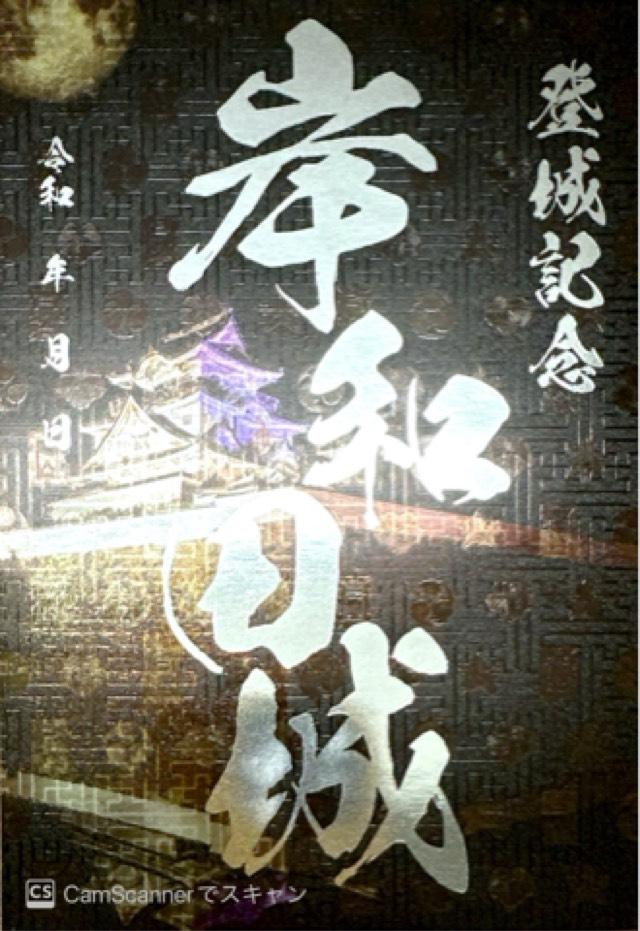 登城記念
岸和田城
令和 年 月 日
CS CamScannerでスキャン